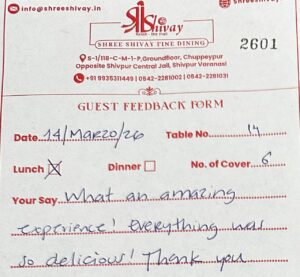 info@shreeshivay.in
shreeshivay.in
Shivay
SHREE SHIVAY FINE DINING
2601
S-1/118-C-M-1-P,Groundfloor, Chuppeypur
Opposite Shivpur Central Jail, Shivpur Varanasi
+91 9935311449 | 0542-2281002 | 0542-2281031
GUEST FEEDBACK FORM
Date 14/MAR20/26 Table No. 14
Lunch Dinner No. of Cover 6
Your Say What an amazing
experience! Everything was
so delicious! Thank you